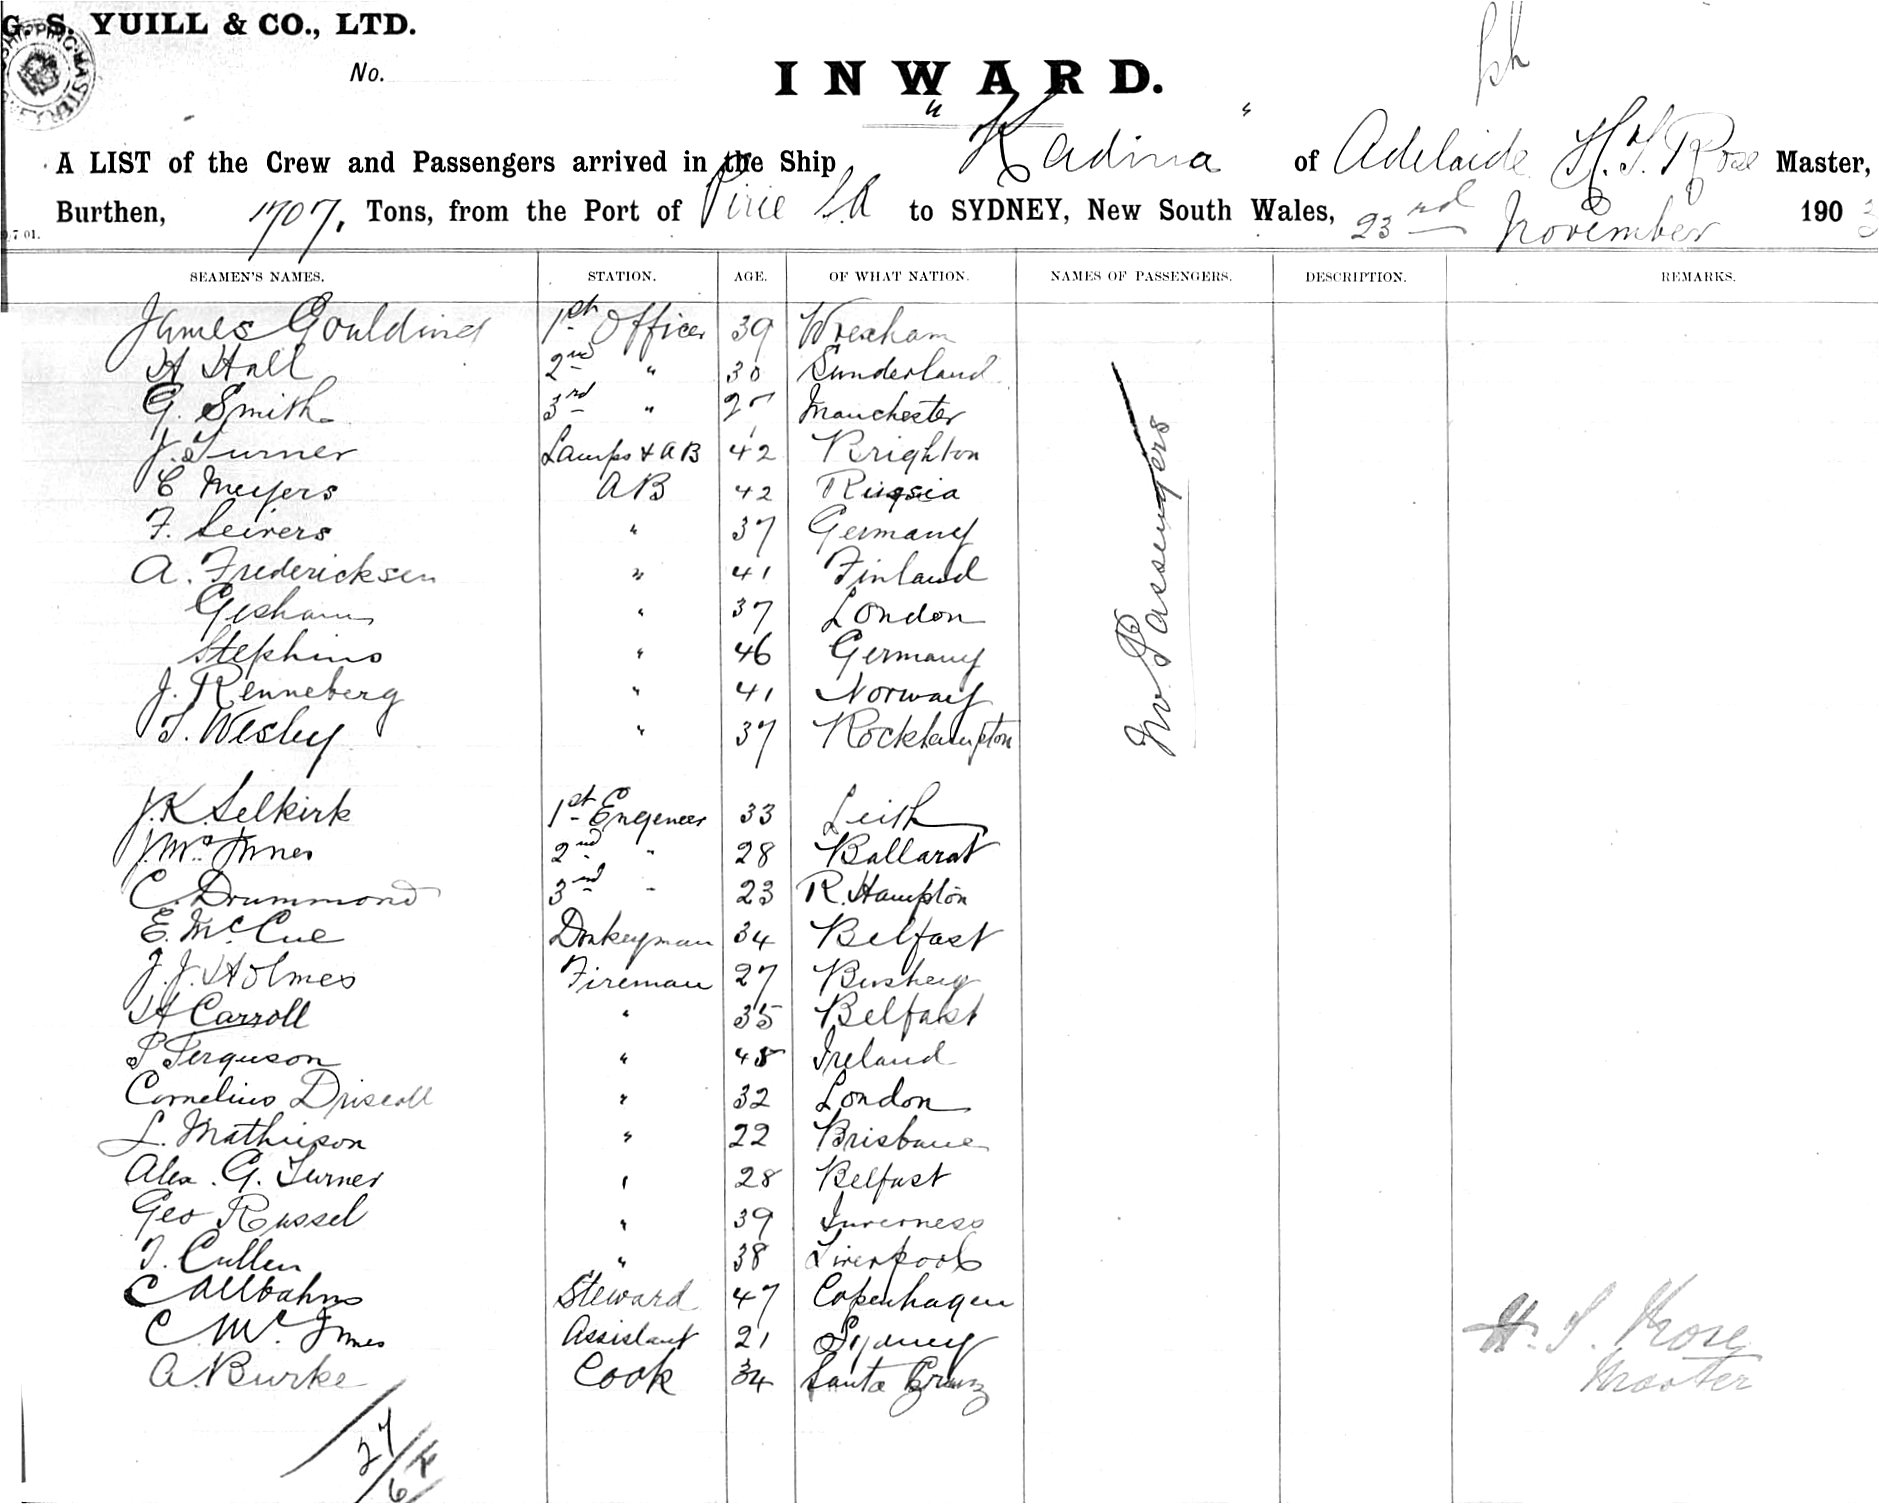 G. S. YUILL & CO., LTD.
No.
INWARD.
A LIST of the Crew and Passengers arrived in the Ship "Kadina" of Adelaide H. S. Rose Master,
Burthen, 1707. Tons, from the Port of Pirie S.A to SYDNEY, New South Wales, 23rd November 190 3
7 01.
SEAMEN'S NAMES. STATION. AGE. OF WHAT NATION. NAMES OF PASSENGERS. DESCRIPTION. REMARKS.
James Goulding 1st Officer 39 Wrexham
H Hall 2nd " 30 Sunderland
G. Smith 3rd " Manchester
J. Turner Lamps & AB 42 Brighton
C Meyers AB 42 Russia
F. Seivers " 37 Germany
A. Fredericksen " 41 Finland
Gesham " 37 London
Stephins " 46 Germany
J. Renneberg " 41 Norway
T. Wesley " 37 Rockhampton
No Passengers
J. K. Selkirk 1st Engeneer 33 Leith
J. McInnes 2nd " 28 Ballarat
C. Drummond 3rd " 23 R. Hampton
E. McCue Donkeyman 34 Belfast
J. J. Holmes Fireman 27 Bushey
H Carroll " 35 Belfast
P Ferguson " 48 Ireland
Cornelius Driscoll " 32 London
L. Mathieson " 22 Brisbane
Alex. G. Turner " 28 Belfast
Geo Russel " 39 Inverness
T. Cullen " 38 Liverpool
C Allbahns Steward 47 Copenhagen
C McInnes Assistant 21 Sydney
A. Burke Cook 34 Santa Cruz
H. S. Rose
Master
27